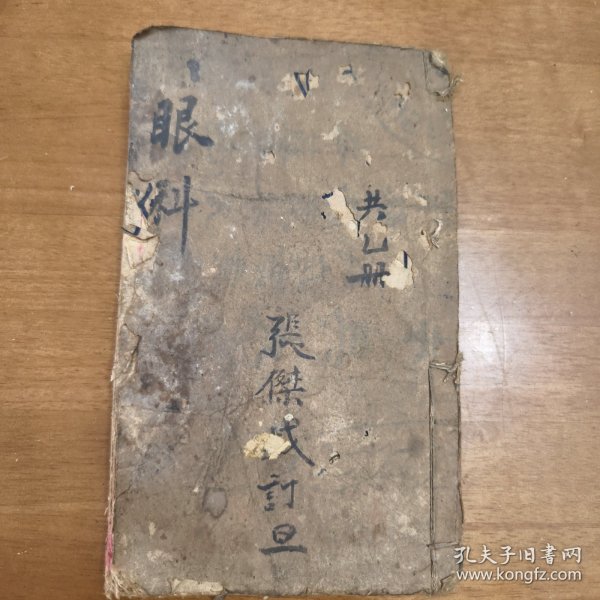 眼科
共乙册
張傑成訂旦
孔夫子旧書网
www.kongfz.com